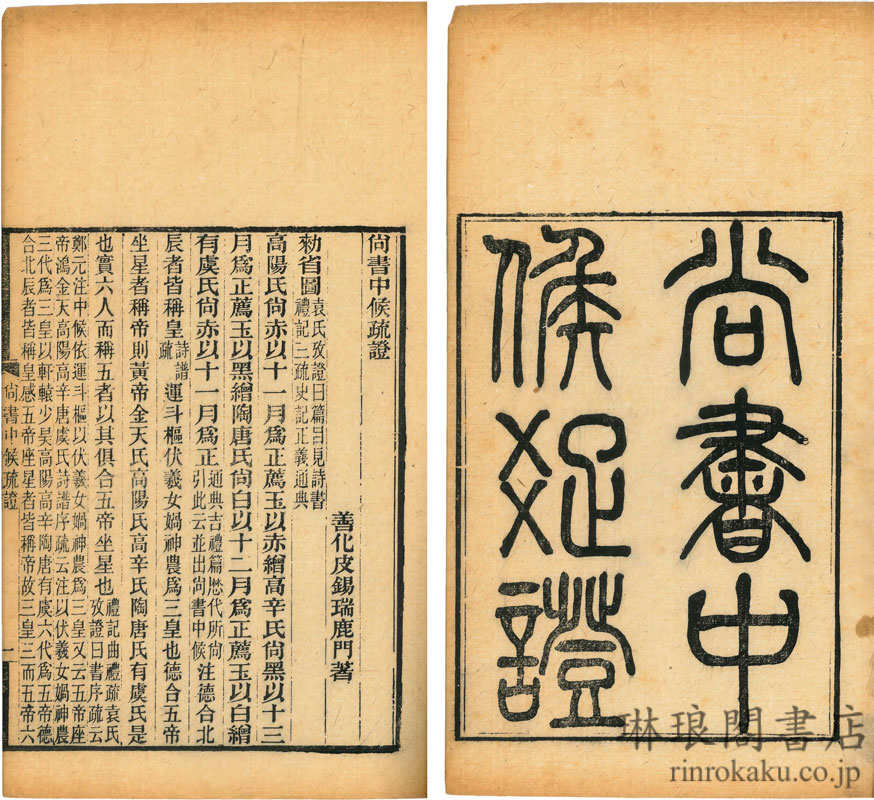 尚書中
候疏證
尚書中候疏證
善化皮錫瑞鹿門著
勑省圖袁氏攷證曰篇曰見詩書
禮記二疏史記正義通典
高陽氏尚赤以十一月爲正薦玉以赤繒高辛氏尚黑以十三
月爲正薦玉以黑繒陶唐氏尚白以十二月爲正薦玉以白繒
有虞氏尚赤以十一月爲正通典吉禮篇歷代所尚
引此云並出尚書中候注德合北
辰者皆稱皇詩譜
疏運斗樞伏羲女媧神農爲三皇也德合五帝
坐星者稱帝則黃帝金天氏高陽氏高辛氏陶唐氏有虞氏是
也實六人而稱五者以其俱合五帝坐星也禮記曲禮疏袁氏
攷證曰書序疏云
鄭元注中候依運斗樞以伏羲女媧神農爲三皇又云五帝座
帝鴻金天高陽高辛唐虞氏詩譜序疏云注以伏羲女媧神農
三代爲三皇以軒轅少昊高陽高辛陶唐有虞六代爲五帝德
合北辰者皆稱皇感五帝座星者皆稱帝故三皇三而五帝六
尚書中候疏證
一
琳琅閣書店
rinrokaku.co.jp